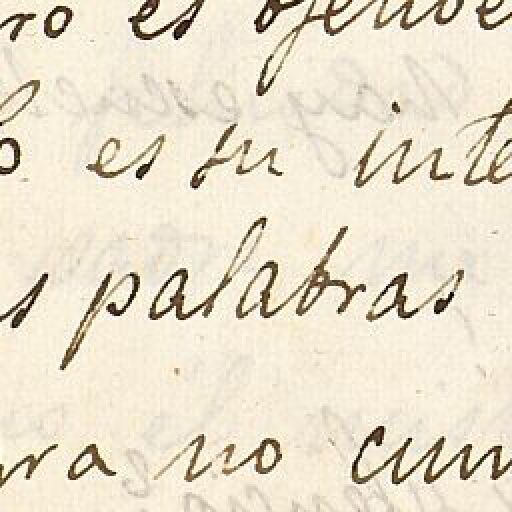 ro es ofende
o es su inte
s palabras
ra no cum